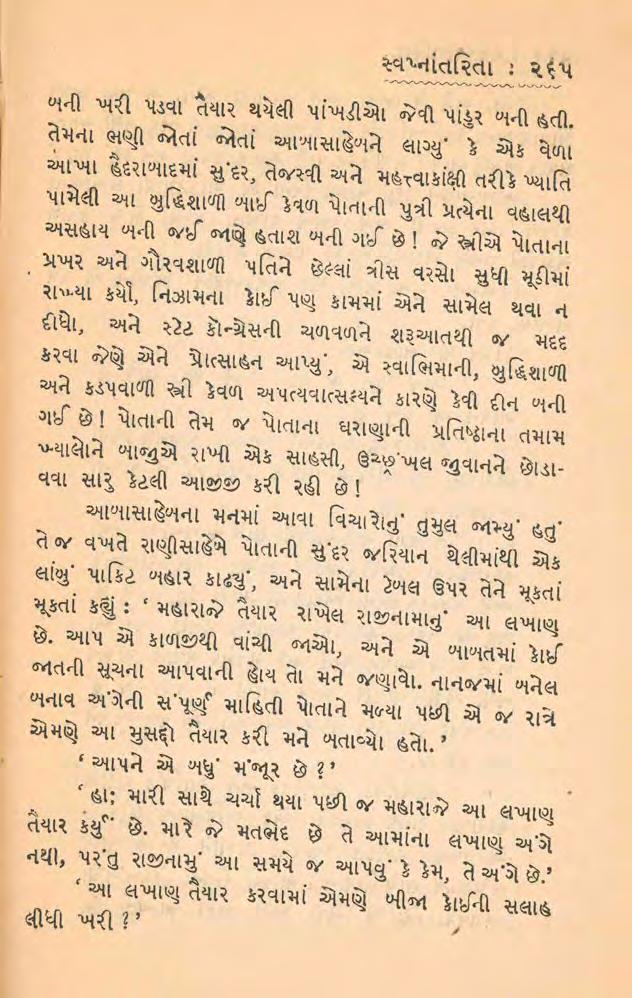 સ્વપ્નાંતરિતા : ૨૬૫
બની ખરી પડવા તૈયાર થયેલી પાંખડીઓ જેવી પાંડુર બની હતી.
તેમના ભણી જોતાં જોતાં આબાસાહેબને લાગ્યું કે એક વેળા
આખા હૈદરાબાદમાં સુંદર, તેજસ્વી અને મહત્ત્વાકાંક્ષી તરીકે ખ્યાતિ
પામેલી આ બુદ્ધિશાળી બાઈ કેવળ પોતાની પુત્રી પ્રત્યેના વહાલથી
અસહાય બની જઈ જાણે હતાશ બની ગઈ છે! જે સ્ત્રીએ પોતાના
પ્રખર અને ગૌરવશાળી પતિને છેલ્લાં ત્રીસ વરસો સુધી મૂઠીમાં
રાખ્યા કર્યો, નિઝામના કોઈ પણ કામમાં એને સામેલ થવા ન
દીધો, અને સ્ટેટ કૉન્ગ્રેસની ચળવળને શરૂઆતથી જ મદદ
કરવા જેણે એને પ્રોત્સાહન આપ્યું, એ સ્વાભિમાની, બુદ્ધિશાળી
અને કડપવાળી સ્ત્રી કેવળ અપત્યવાત્સલ્યને કારણે કેવી દીન બની
ગઈ છે! પોતાની તેમ જ પોતાના ઘરાણાની પ્રતિષ્ઠાના તમામ
ખ્યાલોને બાજુએ રાખી એક સાહસી, ઉચ્છૃંખલ જુવાનને છોડા-
વવા સારુ કેટલી આજીજી કરી રહી છે!
આબાસાહેબના મનમાં આવા વિચારોનું તુમુલ જામ્યું હતું
તે જ વખતે રાણીસાહેબે પોતાની સુંદર જરિયાન થેલીમાંથી એક
લાંબું પાકિટ બહાર કાઢ્યું, અને સામેના ટેબલ ઉપર તેને મૂકતાં
મૂકતાં કહ્યું : ‘મહારાજે તૈયાર રાખેલ રાજીનામાનું આ લખાણ
છે. આપ એ કાળજીથી વાંચી જાઓ, અને એ બાબતમાં કોઈ
જાતની સૂચના આપવાની હોય તો મને જણાવો. નાનજમાં બનેલ
બનાવ અંગેની સંપૂર્ણ માહિતી પોતાને મળ્યા પછી એ જ રાત્રે
એમણે આ મુસદ્દો તૈયાર કરી મને બતાવ્યો હતો.’
‘આપને એ બધું મંજૂર છે?’
‘હા; મારી સાથે ચર્ચા થયા પછી જ મહારાજે આ લખાણ
તૈયાર કર્યું છે. મારે જે મતભેદ છે તે આમાંના લખાણ અંગે
નથી, પરંતુ રાજીનામું આ સમયે જ આપવું કે કેમ, તે અંગે છે.’
‘આ લખાણ તૈયાર કરવામાં એમણે બીજા કોઈની સલાહ
લીધી ખરી?’